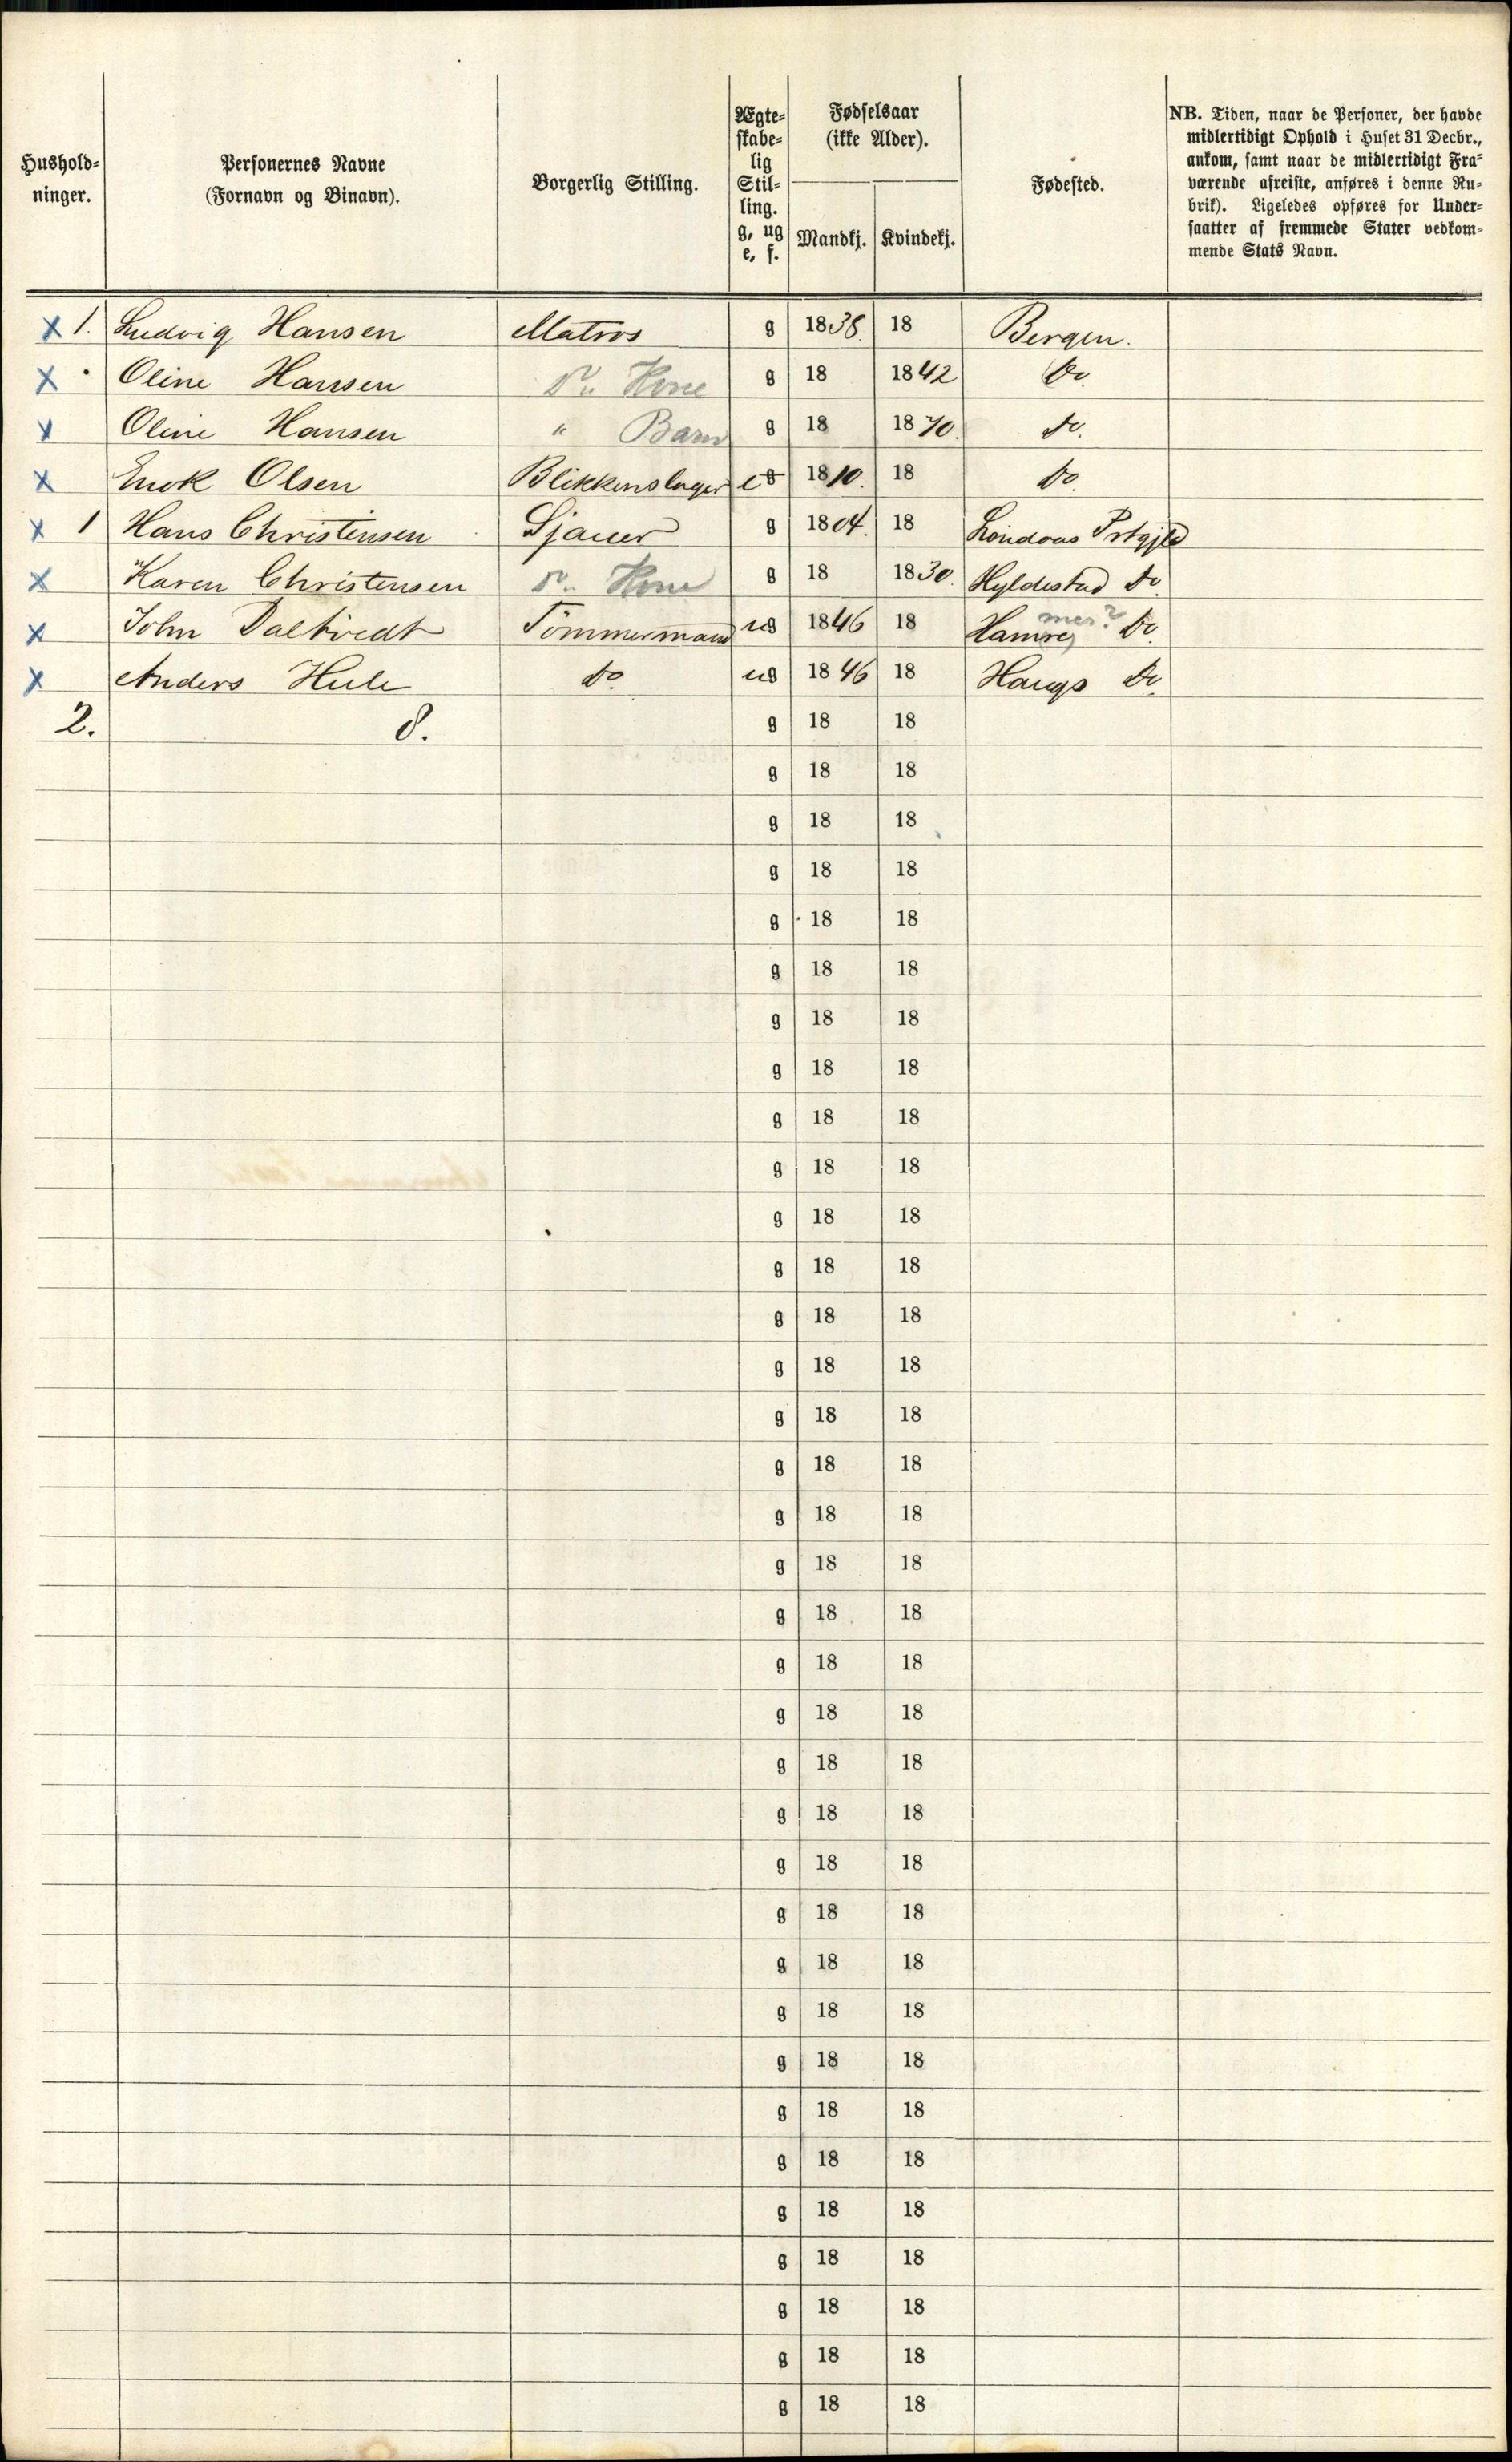 Hushold-
ninger.
Personernes Navne
(Fornavn og Binavn).
Borgerlig Stilling.
Ægte-
skabe-
lig
Stil-
ling.
g, ug
e, f.
Fødselsaar
(ikke Alder).
Mandkj. Kvindekj.
Fødested.
NB. Tiden, naar de Personer, der havde
midlertidigt Ophold i Huset 31 Decbr.,
ankom, samt naar de midlertidigt Fra-
værende afreiste, anføres i denne Ru-
brik). Ligeledes opføres for Under-
saatter af fremmede Stater vedkom-
mende Stats Navn.
x 1. Ludvig Hansen Matros g 1838. 18 Bergen.
x Oline Hansen Kone g 18 1842 Do.
x Oline Hansen " Barn g 18 1870. Do.
x Enok Olsen Blikkenslager e g 1810. 18 Do.
x 1 Hans Christensen Sjauer g 1804. 18 Lindaas Prstgjld
x Karen Christensen Kone g 18 1830. Hyldestad Do.
x John Tømmermand ug 1846 18 Hamre mer? Do.
x Anders Hule Do. ug 1846 18 Haugs Do.
2. 8. g 18 18
g 18 18
g 18 18
g 18 18
g 18 18
g 18 18
g 18 18
g 18 18
g 18 18
g 18 18
g 18 18
g 18 18
g 18 18
g 18 18
g 18 18
g 18 18
g 18 18
g 18 18
g 18 18
g 18 18
g 18 18
g 18 18
g 18 18
g 18 18
g 18 18
g 18 18
g 18 18
g 18 18
g 18 18
g 18 18
g 18 18
g 18 18
g 18 18
g 18 18
g 18 18